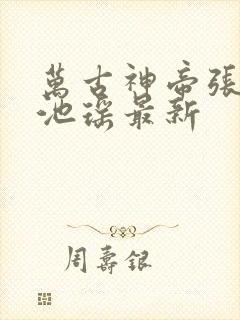 萬古神帝張
池瑤最新
周壽銀